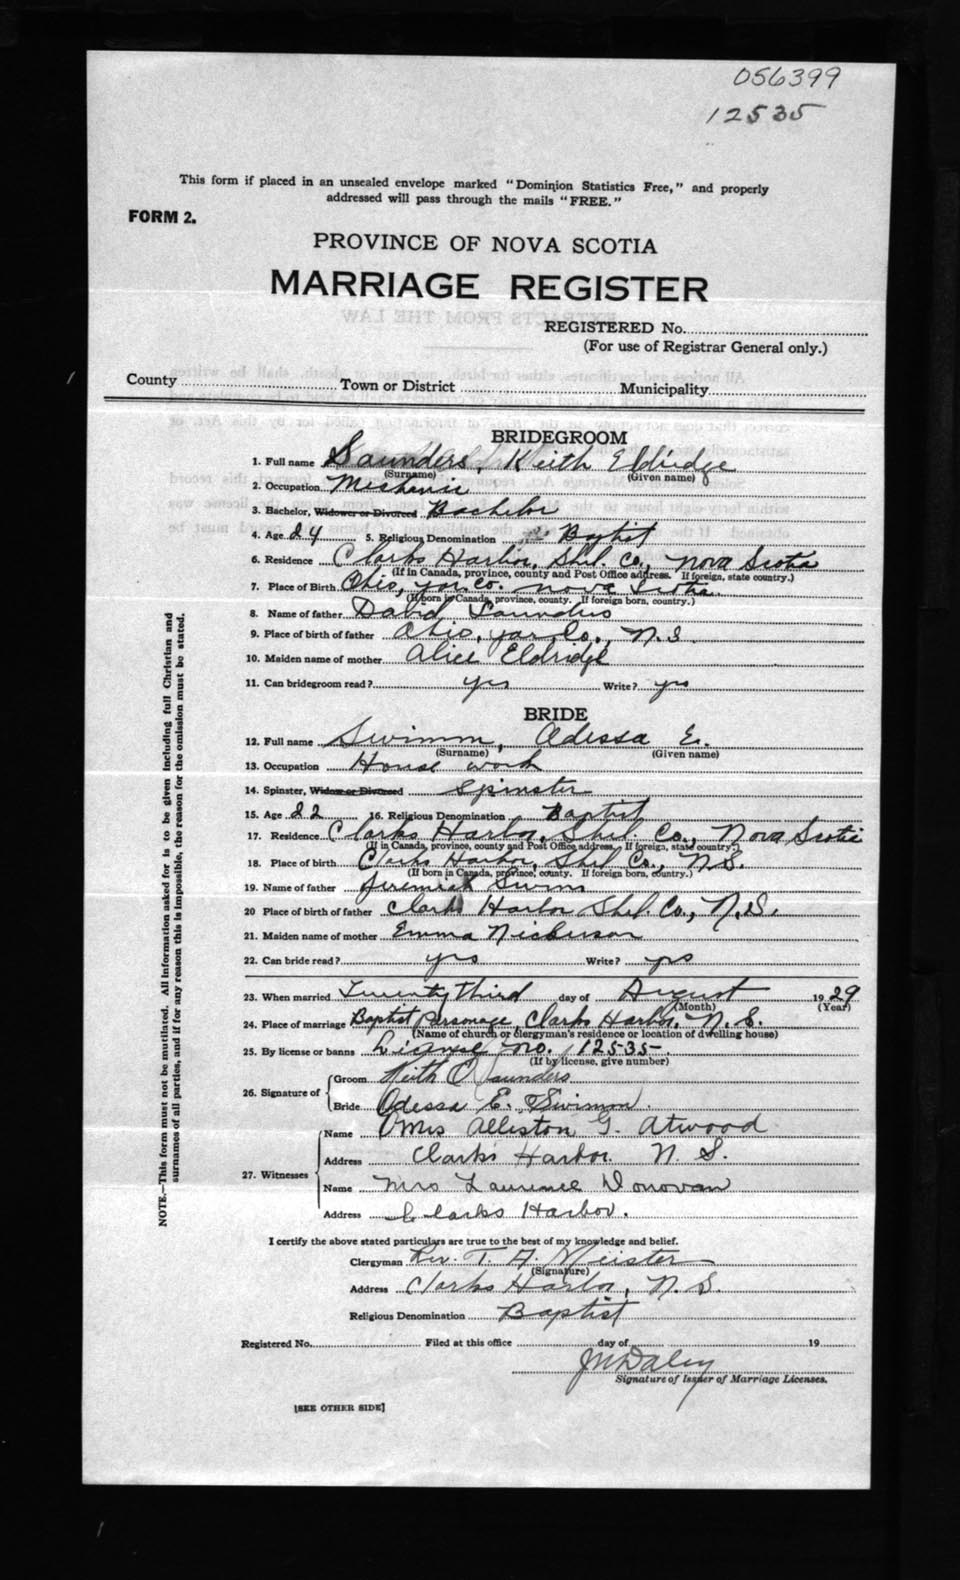 056399
12535
This form if placed in an unsealed envelope marked "Dominion Statistics Free," and properly
addressed will pass through the mails "FREE."
FORM 2.
PROVINCE OF NOVA SCOTIA
MARRIAGE REGISTER
REGISTERED No.
(For use of Registrar General only.)
County Town or District Municipality
BRIDEGROOM
1. Full name Saunders, Keith Eldridge
(Surname) (Given name)
2. Occupation Mechanic
3. Bachelor, Widower or Divorced Bachelor
4. Age 24 5. Religious Denomination Baptist
6. Residence Clarks Harbor, Shel. Co., Nova Scotia
(If in Canada, province, county and Post Office address. If foreign, state country.)
7. Place of Birth Ohio, Yar. Co. Nova Scotia
(If born in Canada, province, county. If foreign born, country.)
8. Name of father David Saunders
9. Place of birth of father Ohio, Yar. Co., N.S.
10. Maiden name of mother Alice Eldridge
11. Can bridegroom read? yes Write? yes
BRIDE
12. Full name Swimm, Odessa E.
(Surname) (Given name)
13. Occupation House work
14. Spinster, Widow or Divorced Spinster
15. Age 22 16. Religious Denomination Baptist
17. Residence Clarks Harbor, Shel. Co., Nova Scotia
(If in Canada, province, county and Post Office address. If foreign, state country.)
18. Place of birth Clarks Harbor, Shel. Co., N.S.
(If born in Canada, province, county. If foreign born, country.)
19. Name of father Jeremiah Swimm
20 Place of birth of father Clarks Harbor Shel. Co., N.S.
21. Maiden name of mother Emma Nickerson
22. Can bride read? yes Write? yes
23. When married Twenty Third day of August 1929
(Month) (Year)
24. Place of marriage Baptist Parsonage, Clarks Harbor, N.S.
(Name of church or clergyman's residence or location of dwelling house)
25. By license or banns License no. 12535
(If by license, give number)
26. Signature of Groom Keith E Saunders
Bride Odessa E. Swimm.
27. Witnesses Name Mrs Alliston G. Atwood
Address Clarks Harbor. N. S.
Name Mrs Laurence Donovan
Address Clarks Harbor.
I certify the above stated particulars are true to the best of my knowledge and belief.
Clergyman Rev. T. A. Meister
(Signature)
Address Clarks Harbor, N.S.
Religious Denomination Baptist
Registered No. Filed at this office day of 19
Signature of Issuer of Marriage Licenses.
[SEE OTHER SIDE]
NOTE.—This form must not be mutilated. All information asked for is to be given including full Christian and
surnames of all parties, and if for any reason this is impossible, the reason for the omission must be stated.